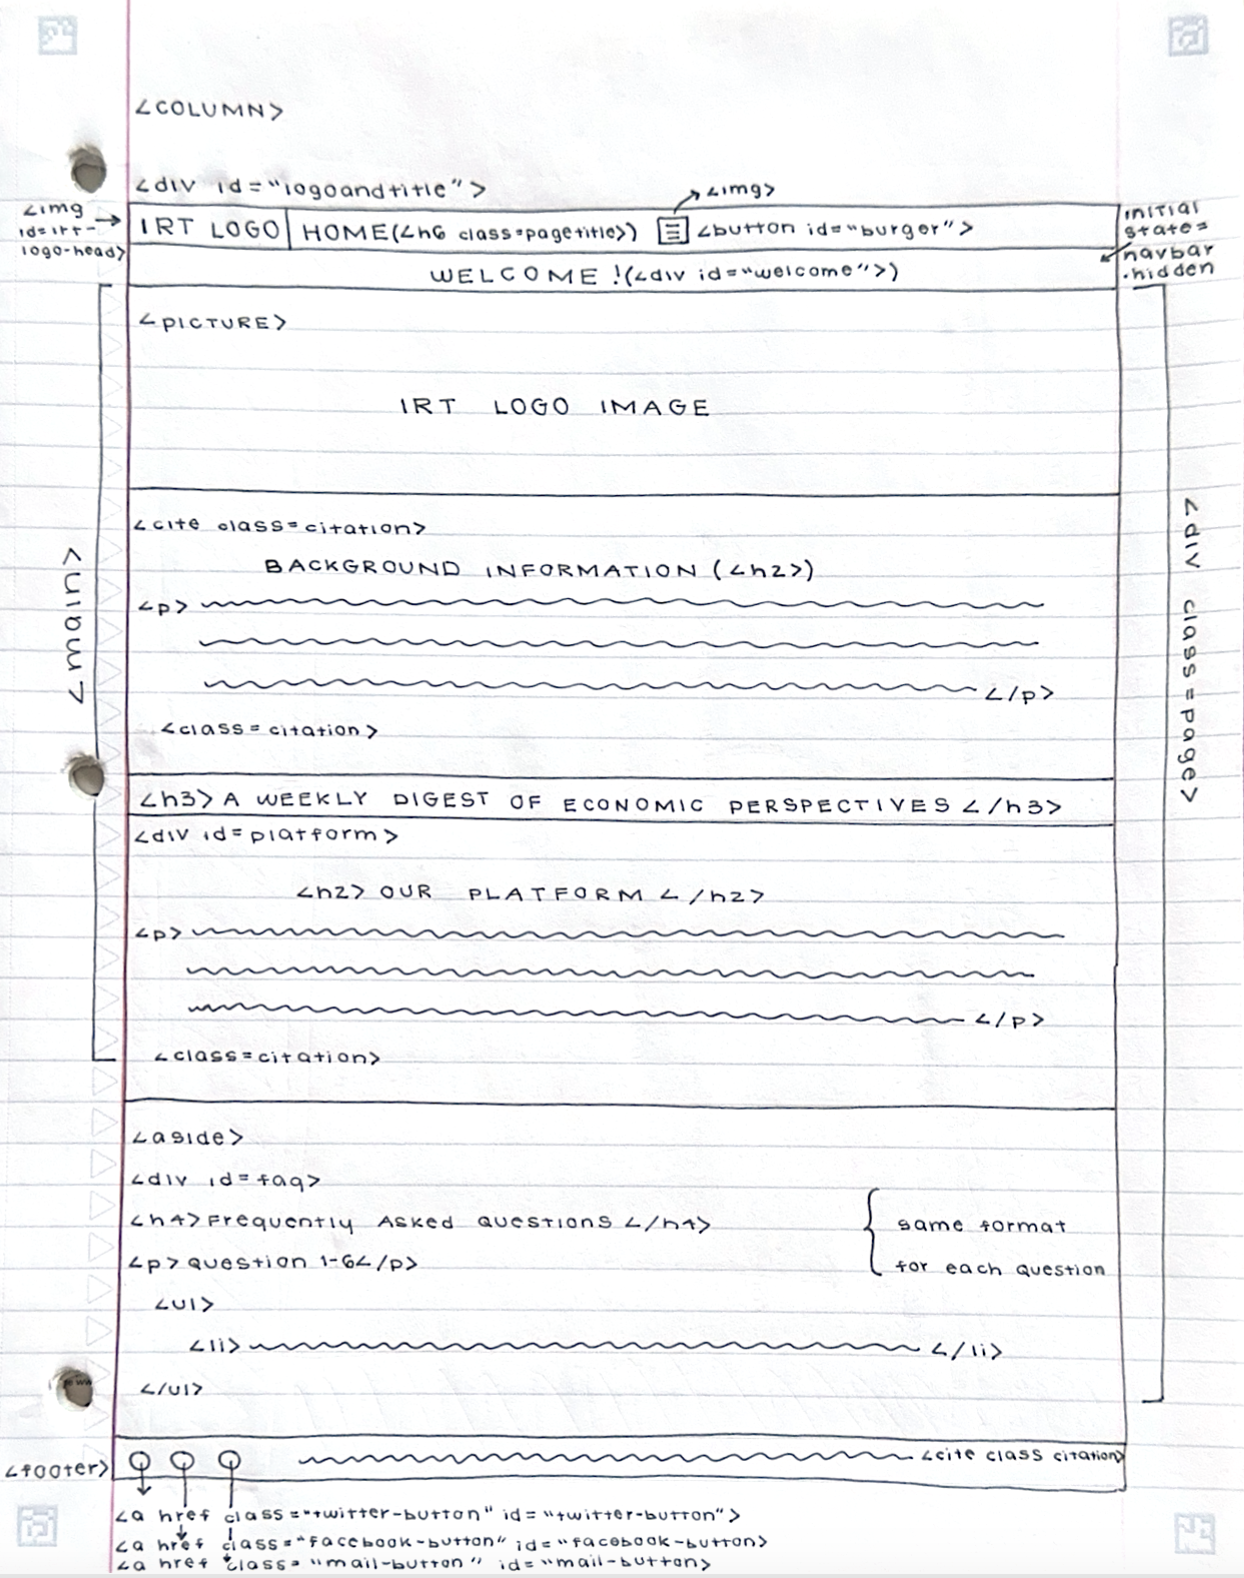 <COLUMN>
<div id="logoandtitle">
<img>
<img
id=irt-
logo-head>
IRT LOGO
HOME(<h6 class=pagetitle>)
<button id="burger">
initial
state=
navbar
.hidden
WELCOME !(<div id="welcome">)
<PICTURE>
IRT LOGO IMAGE
<main>
<div class=page>
<cite class=citation>
BACKGROUND INFORMATION (<h2>)
<p>
</p>
<class=citation>
<h3> A WEEKLY DIGEST OF ECONOMIC PERSPECTIVES </h3>
<div id=platform>
<h2> OUR PLATFORM </h2>
<p>
</p>
<class=citation>
<aside>
<div id=faq>
<h4>Frequently Asked Questions </h4>
<p> question 1-6</p>
same format
for each question
<ul>
<li> </li>
</ul>
<footer>
<cite class citation>
<a href class="twitter-button" id="twitter-button">
<a href class="facebook-button" id="facebook-button>
<a href class="mail-button" id="mail-button>